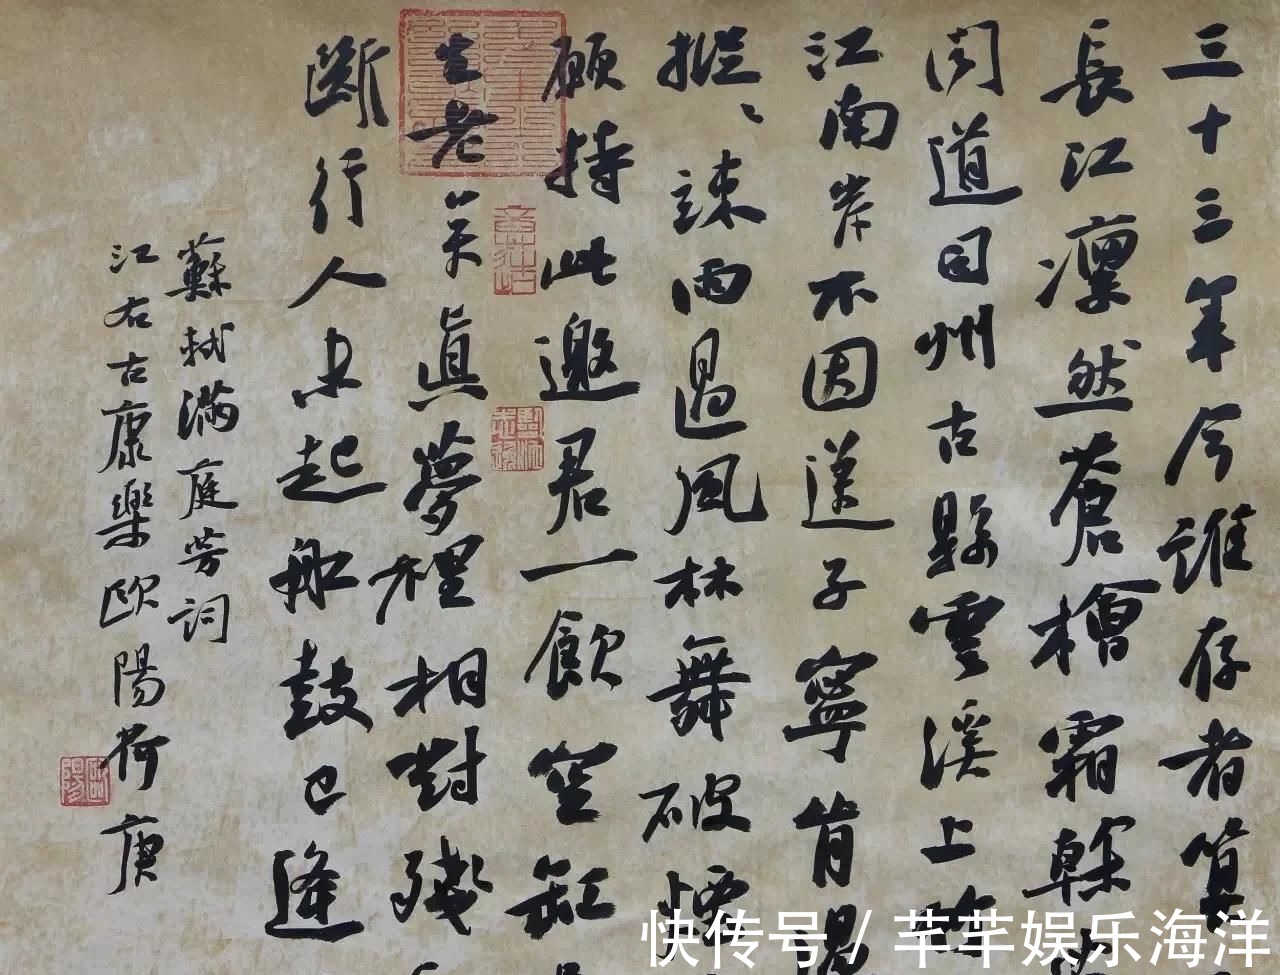 三十三年今誰存者算
長江凜然蒼檜霜榦
聞道司州古縣雲溪上竹
江南岸不因送子寧肯過
摐〻疎雨過風林舞破煙
願持此邀君一飲空缸
生老矣真夢裡相對殘
斷行人未起船鼓已逢
蘇軾滿庭芳詞
江右古康樂歐陽荷庚
快传号/芊芊娱乐海洋